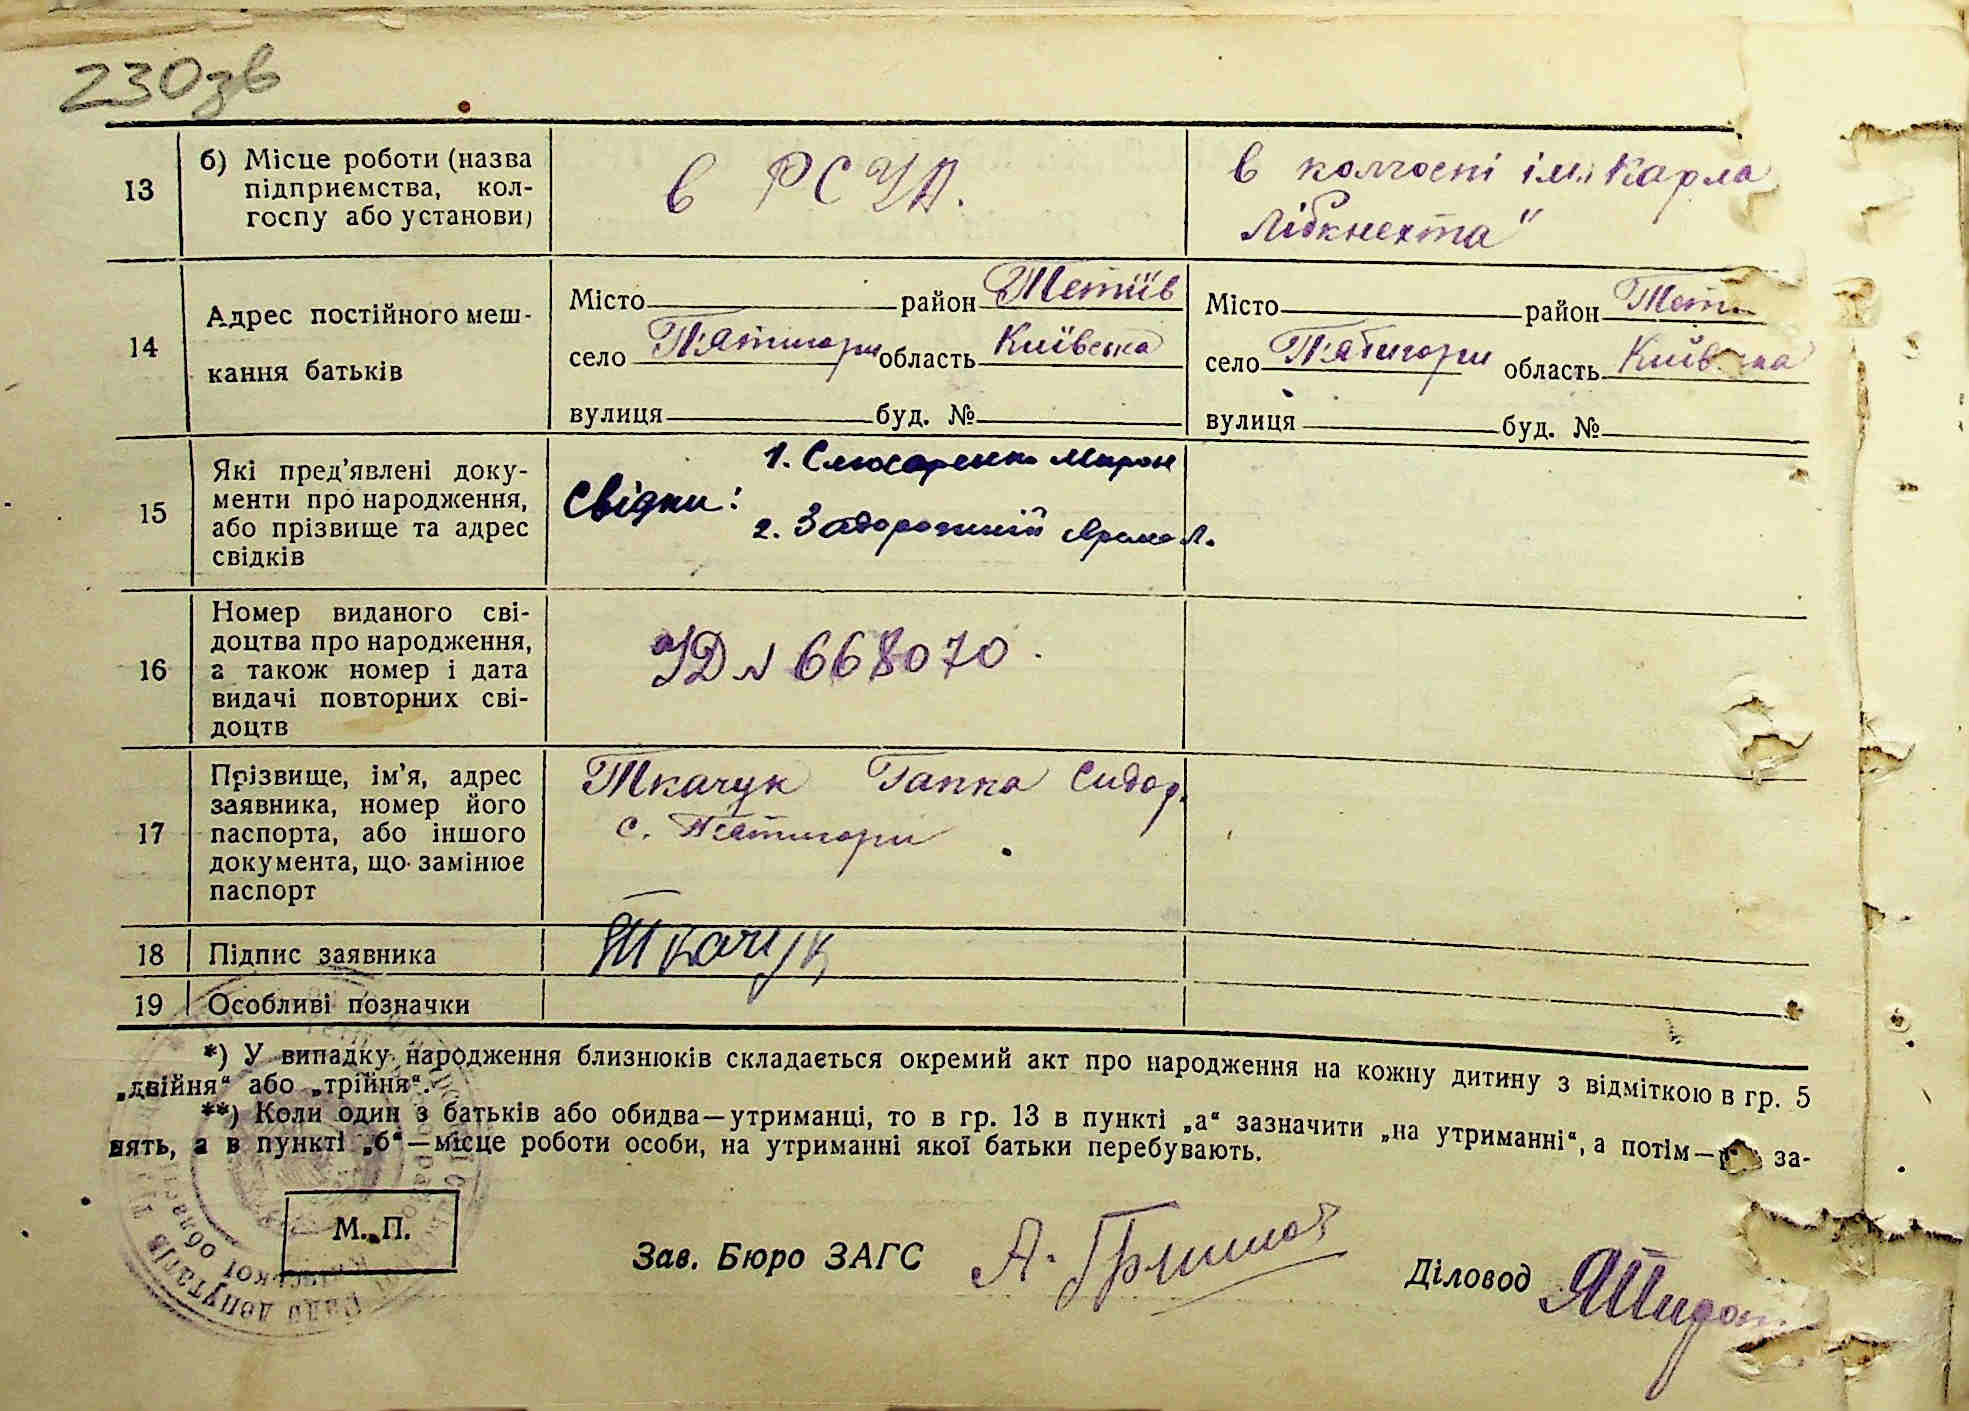 230зв
13 б) Місце роботи (назва
підприємства, кол-
госпу або установи)
в РСЧА.
в колгоспі ім. Карла
Лібкнехта"
14 Адрес постійного меш-
кання батьків
Місто район Тетіїв
село П'ятигори область Київська
вулиця буд. №
Місто район
село П'ятигори область Київська
вулиця буд. №
15 Які пред'явлені доку-
менти про народження,
або прізвище та адрес
свідків
Свідки: 1. Слюсаренко Мирон
2. Задорожній
16 Номер виданого сві-
доцтва про народження,
а також номер і дата
видачі повторних сві-
доцтв
УД № 668070.
17 Прізвище, ім'я, адрес
заявника, номер його
паспорта, або іншого
документа, що замінює
паспорт
Ткачук Гапка Сидор.
с. П'ятигори
18 Підпис заявника
Ткачук
19 Особливі позначки
*) У випадку народження близнюків складається окремий акт про народження на кожну дитину з відміткою в гр. 5
„двійня“ або „трійня“.
**) Коли один з батьків або обидва—утриманці, то в гр. 13 в пункті „а“ зазначити „на утриманні“, а потім— за-
нять, а в пункті „б“—місце роботи особи, на утриманні якої батьки перебувають.
М. П.
Зав. Бюро ЗАГС
Діловод